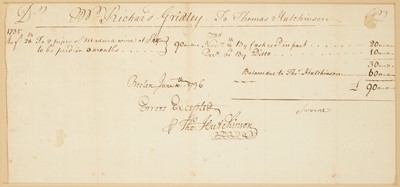 Dr Mr Richard Gridley To Thomas Hutchinson Cr
1735
To 2 pipes of Madeira wine at £45
to be paid in 3 months 90
1735
Novr By Cash recd in part 20
Decr By Ditto 10
30
Balance due to Thos Hutchinson 60
£ 90
Boston June 1736
Errors Excepted
Thos Hutchinson